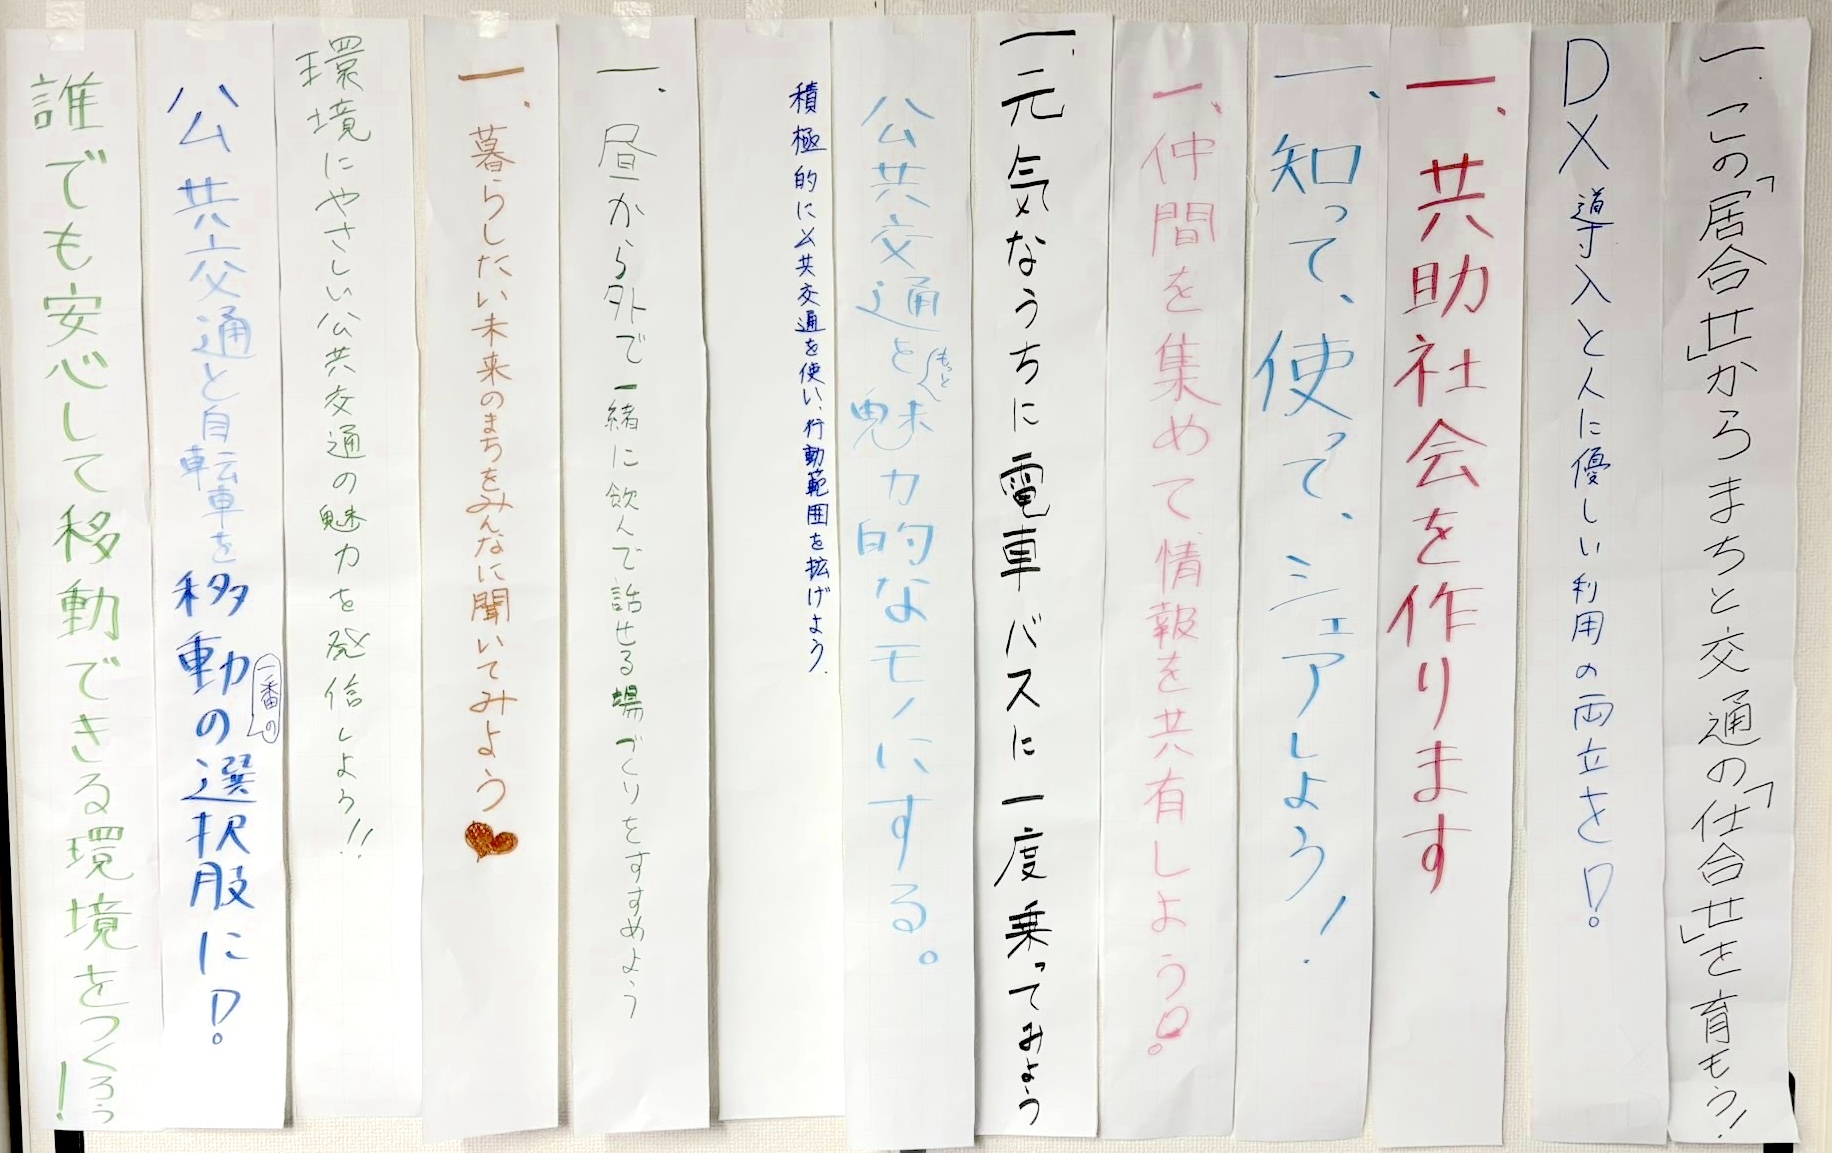 一、この「居合せ」からまちと交通の「仕合せ」を育もう！
DX導入と人に優しい利用の両立を！
一、共助社会を作ります
一、知って、使って、シェアしよう！
一、仲間を集めて情報を共有しよう！
一、元気なうちに電車バスに一度乗ってみよう
公共交通をもっと魅力的なモノにする。
積極的に公共交通を使い、行動範囲を拡げよう。
一、昼から外で一緒に飲んで話せる場づくりをすすめよう
一、暮らしたい未来のまちをみんなに聞いてみよう
環境にやさしい公共交通の魅力を発信しよう！！
公共交通と自転車を移動の一番の選択股に！
誰でも安心して移動できる環境をつくろう！